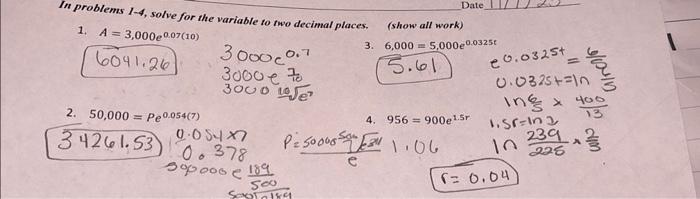 Date 11/1/23
In problems 1-4, solve for the variable to two decimal places. (show all work)
1. A = 3,000e^0.07(10)
6041.26
3000e^0.7
3000e^7/10
3000 10√e^7
3. 6,000 = 5,000e^0.0325t
5.61
e^0.0325t = 6/5
0.0325t = ln 6/5
ln 6/5 × 400/13
2. 50,000 = Pe^0.054(7)
34261.53
0.054×7
0.378
e 189/500
4. 956 = 900e^1.5r
1.06
ln 239/225 × 2/3
r = 0.04